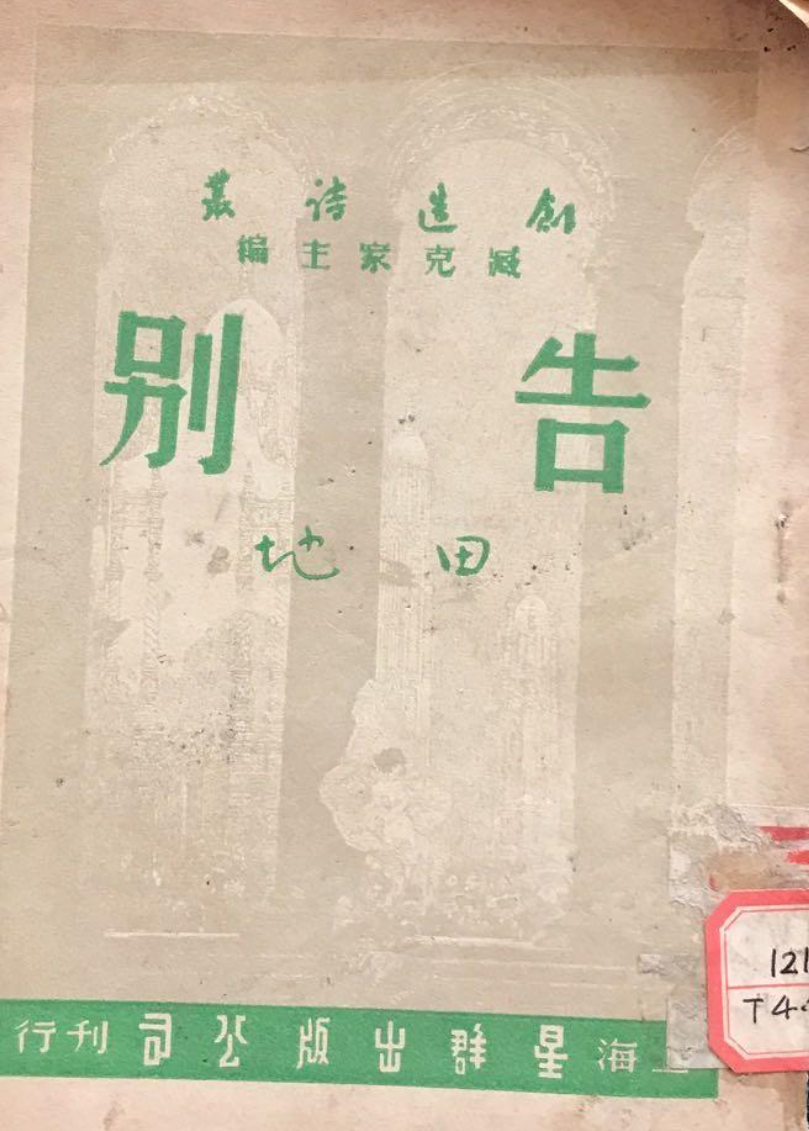 創造詩叢
臧克家主編
告別
田地
上海星群出版公司刊行
121
T44